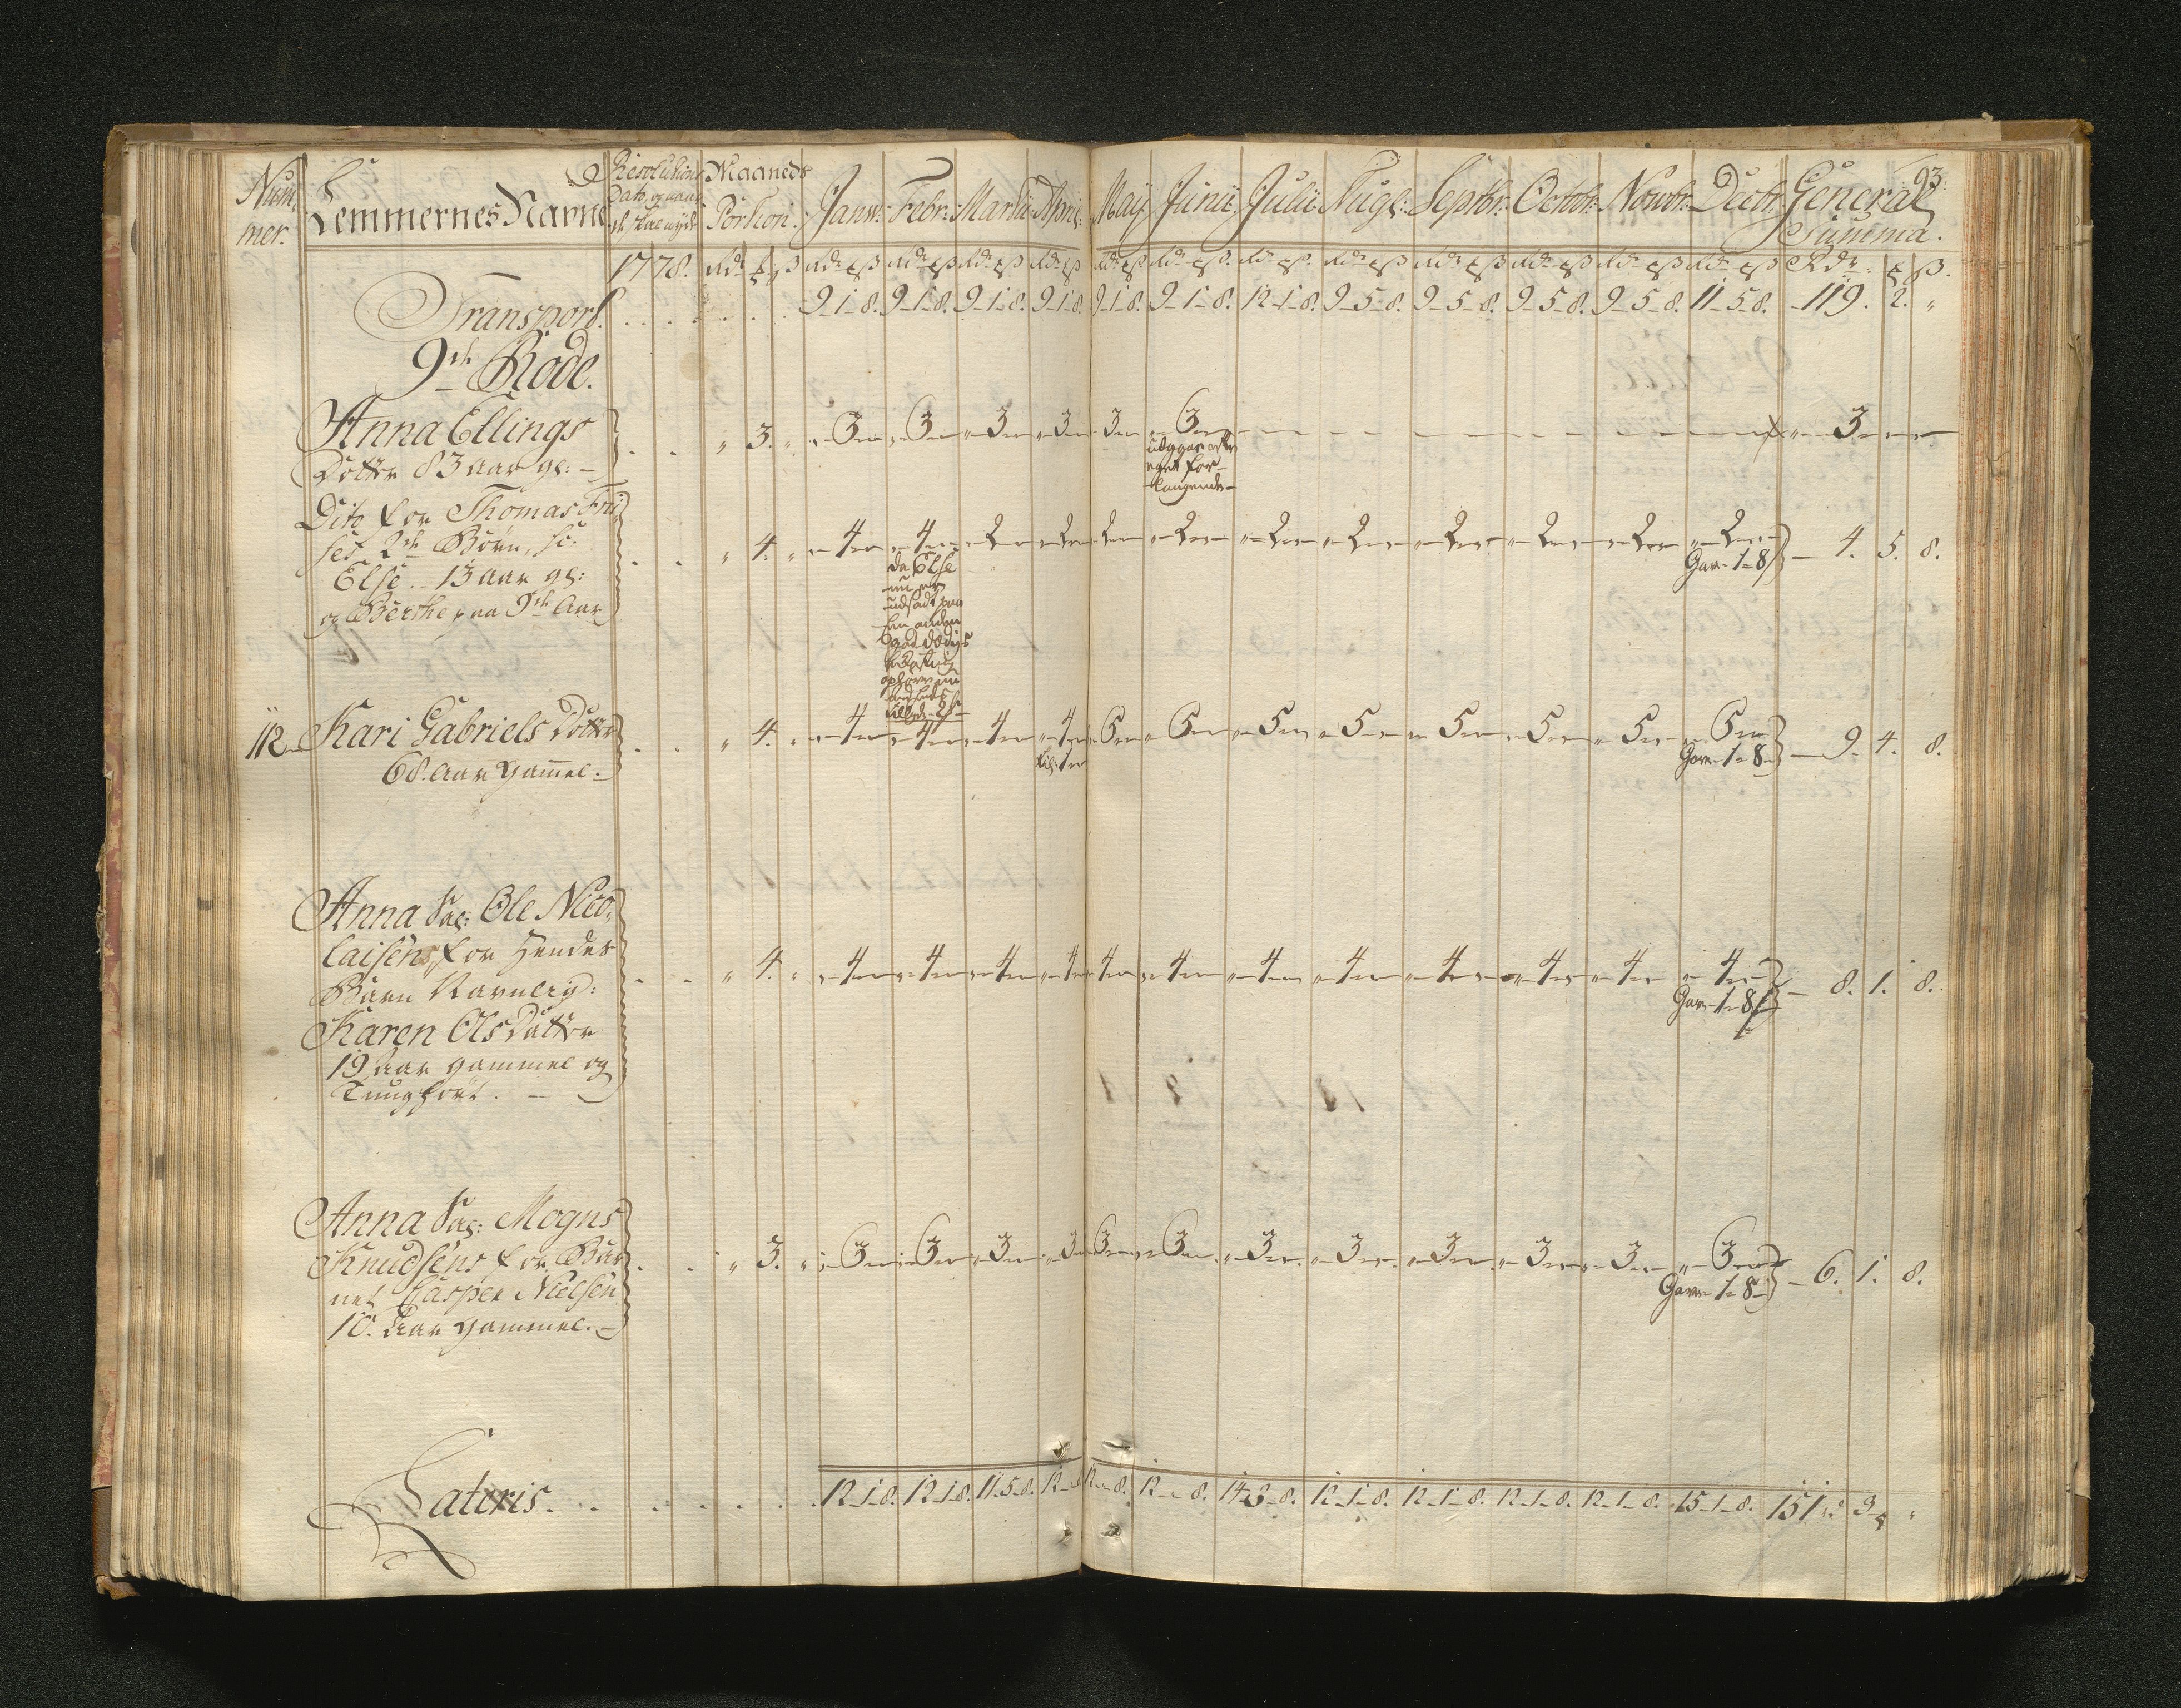 93.
Num,, Lemmernes Navne Resolutions Maaneds Janv: Febr: Martii April: May Junii Julii Augs: Septbr: Octobr: Novbr: Decbr: General
mer. Dato, og naar Portion. Summa.
1778. Rdr ß Rdr ß Rdr ß Rdr ß Rdr ß Rdr ß Rdr ß Rdr ß Rdr ß Rdr ß Rdr ß Rdr ß Rdr ß Rdr: ß.
Transport. 9-1-8. 9-1-8. 9-1-8. 9-1-8. 9-1-8. 9-1-8. 12-1-8. 9-5-8. 9-5-8. 9-5-8. 9-5-8. 11-5-8. 119. 2. "
9de Rode.
Anna Ellings " 3. " 3 3 3 3 3 3 3
Dotter 83 aar gl: -
udgaar efter
eget for-
langende
Dito for Thomas Fri,,
ses 2de Børn, sc: " 4. " 4 4 2 2 2 2 2 2 2 2 2 2 4. 5. 8.
Else 13 aar gl: Gav. 1-8
og Berthe paa 9de Aar
da Else
nu er
udsadt paa
112 Kari Gabriels Dotter " 4. " 4 4 4 4 5 5 5 5 5 5 5 5 9. 4. 8.
68. Aar Gammel. Gav. 1-8
Anna Sal: Ole Nico,,
laisens, for Hendes
Barn Navnlig: " 4. " 4 4 4 4 4 4 4 4 4 4 4 4 8. 1. 8.
Karen Ols Datter Gav. 1-8
19 aar gammel og
Tunghört.
Anna Sal: Mogns
Knudsens, for Bar " 3. " 3 3 3 3 3 3 3 3 3 3 3 3 6. 1. 8.
net Casper Nielsen Gav. 1-8
10. Aar gammel.
Lateris. 12-1-8. 12-1-8. 11-5-8. 12-"-8. 12-"-8. 12-"-8. 14-3-8. 12-1-8. 12-1-8. 12-1-8. 12-1-8. 15-1-8. 151. 3 "